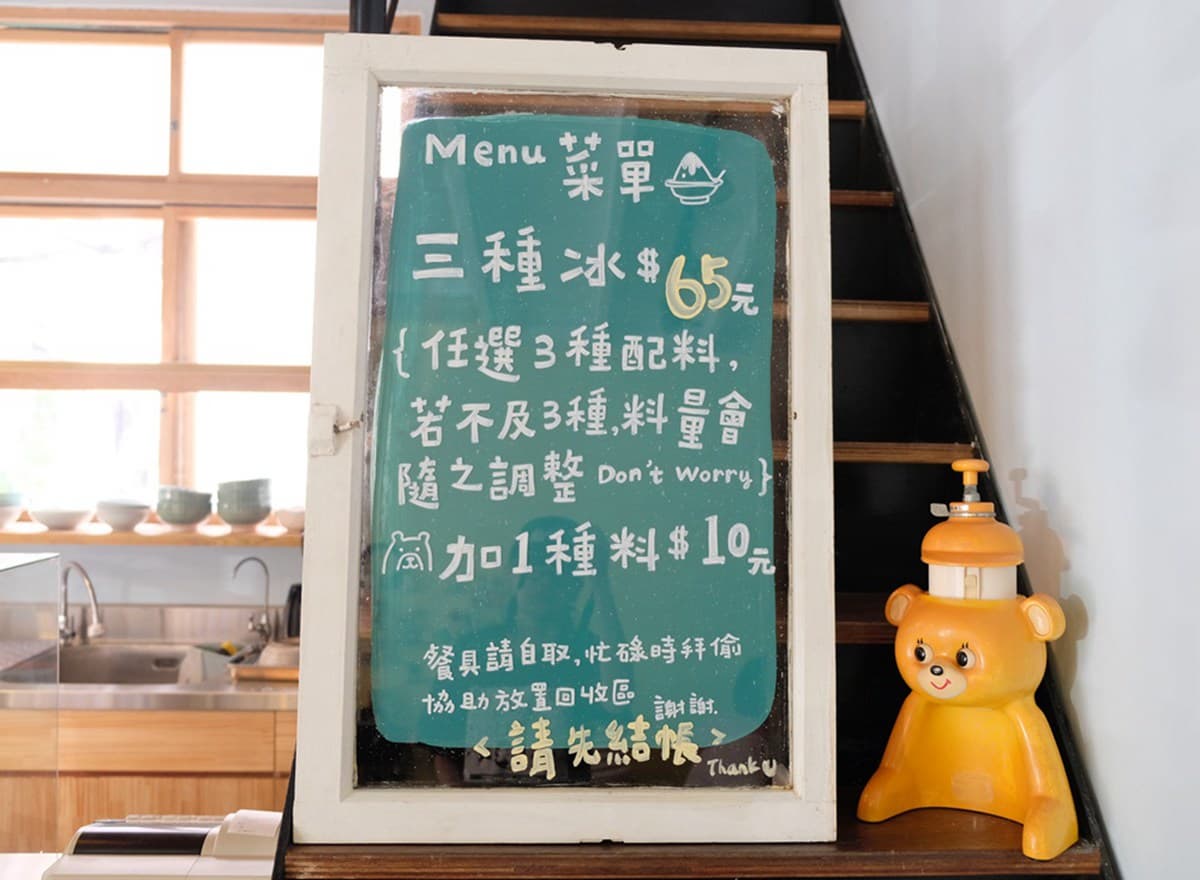 Menu 菜單
三種冰 $65元
{任選3種配料,
若不及3種,料量會
隨之調整 Don't worry}
加1種料 $10元
餐具請自取,忙碌時拜偷
協助放置回收區 謝謝.
<請先結帳>
Thank U